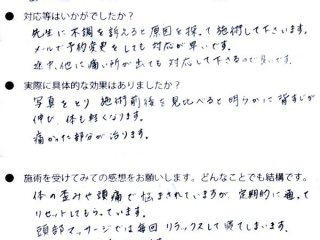 ● 対応等はいかがでしたか？
先生に不調を訴えると原因を探って施術して下さいます。
メールで予約変更をしても対応が早いです。
途中、他に痛い所が出ても対応して下さるので良いです。
● 実際に具体的な効果はありましたか？
写真をとり施術前後を見比べると明らかに背すじが
伸び、体も軽くなります。
痛かった部分が治ります。
● 施術を受けてみての感想をお願いします。どんなことでも結構です。
体の歪みや頭痛で悩まされていますが、定期的に通って
リセットしてもらっています。
頭部マッサージでは毎回リラックスして寝てしまいます。